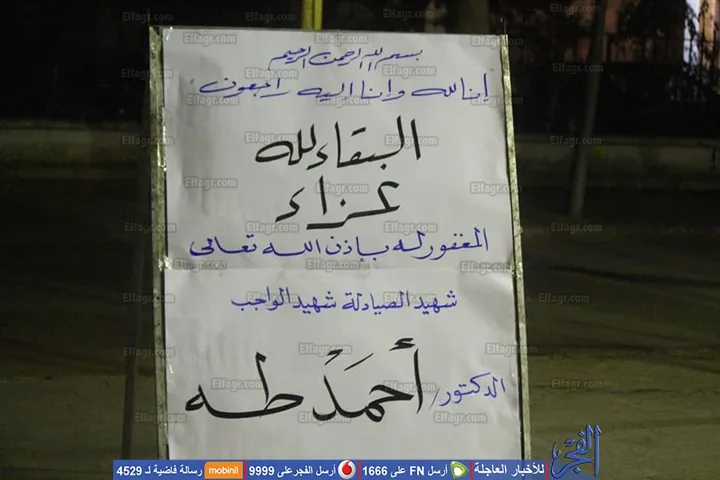 بسم الله الرحمن الرحيم
"إنا لله وإنا إليه راجعون"
البقاء لله
عزاء
المغفور له بإذن الله تعالى
شهيد الصيادلة شهيد الواجب
الدكتور/ أحمد طه
Elfagr.com
الفجر
للأخبار العاجلة أرسل FN على 1666 أرسل الفجر على 9999 mobinil رسالة فاضية لـ 4529